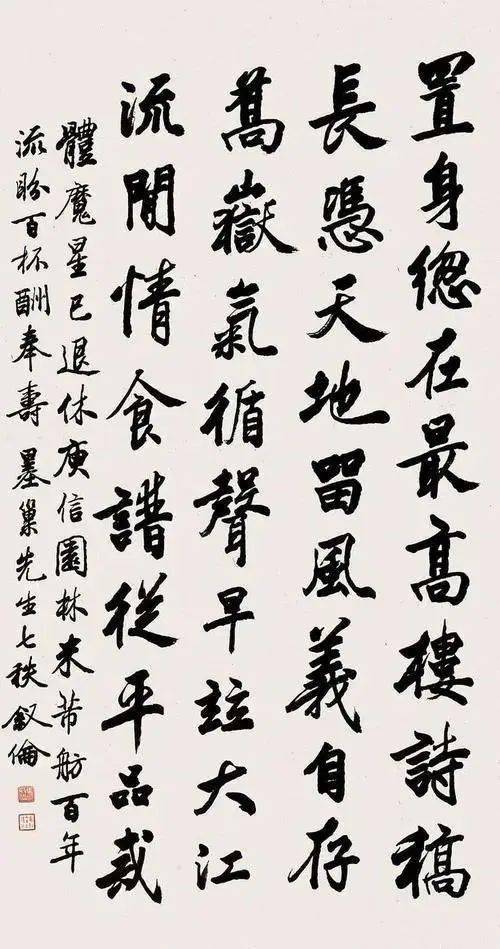 置身總在最高樓詩稿
長憑天地留風義自存
嵩嶽氣循聲早竝大江
流閒情食譜從平品戒
體魔星已退休庾信園林米芾舫百年
流盼百杯酬奉壽墨巢先生七秩叙倫